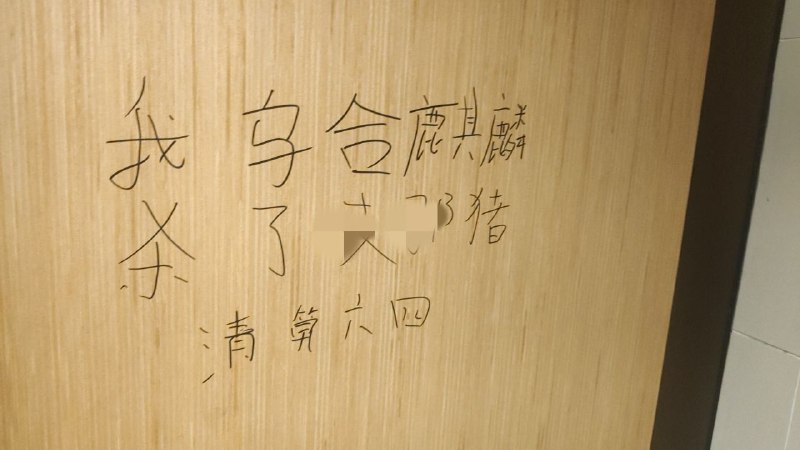 我乌合麒麟
杀了猪
清算六四